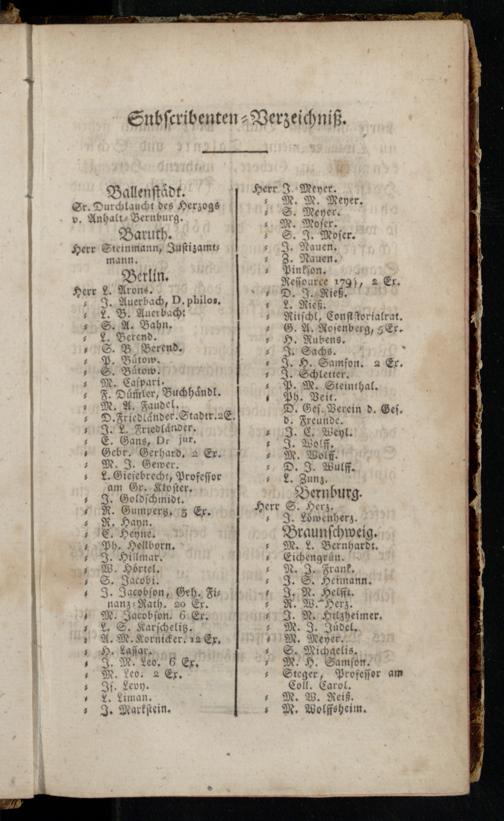 Subscribenten-Verzeichniß.
Ballenstädt.
Sr. Durchlaucht des Herzogs
v. Anhalt-Bernburg.
Baruth.
Herr Steinmann, Justizamt-
mann.
Berlin.
Herr L. Arons.
= J. Auerbach, D. philos.
= L. B. Auerbach.
= S. A. Bahn.
= L. Berend.
= S. B. Berend.
= P. Bütow.
= S. Bütow.
= M. Caspari.
= F. Dümler, Buchhändl.
= M. A. Faudel.
= D. Friedländer. Stadtr. 2E.
= J. L. Friedländer.
= E. Gans, Dr jur.
Gebr. Gerhard, 2 Ex.
= M. J. Gewer.
= L. Giesebrecht, Professor
am Gr. Kloster.
= J. Goldschmidt.
= R. Gumpertz, 5 Ex.
= R. Hayn.
= C. Heyne.
= Ph. Hellborn.
= J. Hillmar.
= W. Hörtel.
= S. Jacobi.
= J. Jacobson, Geh. Fi-
nanz-Rath. 20 Ex.
= M. Jacobson. 6 Ex.
= L. S. Karschelitz.
= A. M. Kornicker. 12 Ex.
= H. Lassar.
= J. M. Leo. 6 Ex.
= M. Leo. 2 Ex.
= Is. Levy.
= L. Liman.
= J. Markstein.
Herr J. Meyer.
= M. M. Meyer.
= S. Meyer.
= M. Moser.
= S. J. Moser.
= J. Nauen.
= Z. Nauen.
= Pinkson.
Ressource 179, 2 Ex.
= D. J. Rieß.
= L. Rieß.
= Ritschl, Consistorialrat.
= G. A. Rosenberg, 5 Ex.
= H. Rubens.
= J. Sachs.
= J. H. Samson. 2 Ex.
= J. Schletter.
= P. M. Steinthal.
= Ph. Veit.
= D. Ges. Verein d. Ges.
d. Freunde.
= J. C. Weyl.
= J. Wolff.
= M. Wolff.
= D. J. Wulff.
= L. Zunz.
Bernburg.
Herr S. Herz.
= J. Löwenherz.
Braunschweig.
= M. L. Bernhardt.
= Eichengrün.
= N. J. Frank.
= J. S. Heimann.
= J. N. Helfft.
= R. W. Herz.
= J. N. Hilzheimer.
= M. J. Jüdel.
= M. Meyer.
= S. Michaelis.
= M. H. Samson.
= Steger, Professor am
Coll. Carol.
= M. W. Reiß.
= M. Wolffsheim.